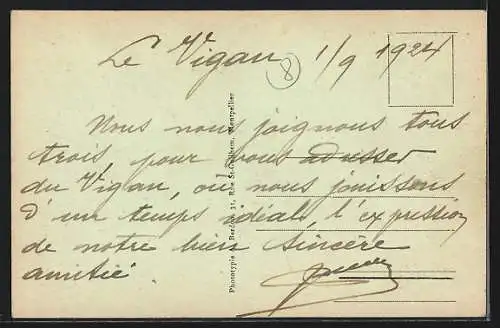 Le Vigan 1/9 1924
8
Nous nous joignons tous
trois, pour vous adresser
du Vigan, où nous jouissons
d'un temps idéal, l'expression
de notre bien sincère
amitié.
Phototypie Montpellier